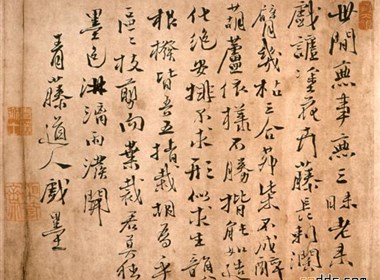 世間無事無三昧老來
戲謔塗花卉藤長刺闊
臂幾枯三合茆柴不成醉
葫蘆依樣不勝揩能如造
化絕安排不求形似求生韻
根撥皆吾五指栽胡為乎
區々枝剪而葉裁君莫猜
墨色淋漓雨撥開
青藤道人戲墨